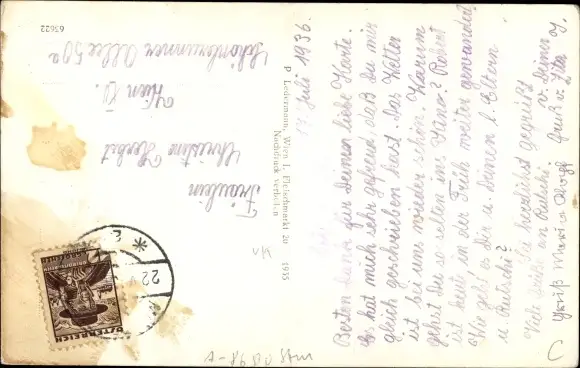 17. Juli 1936.
Besten Dank für Deinen liebe Karte.
Es hat mich sehr gefreut, daß Du mir
gleich geschrieben hast. Das Wetter
ist bei uns wieder schön. Warum
gehst Du so selten ins Kino? Robert
ist heute in der Früh weiter gewandert
Wie geht es Dir u. Deinen l. Eltern
u Rutschi?
Sei herzlichst gegrüßt
v. Deiner
Viele Grüße an Rutschi
Gruß v. Ilse J.
Gruß Maria
P. Ledermann, Wien I. Fleischmarkt 20 1935
Nachdruck verboten
Fräulein
Christine Herbst
Wien XII.
Schönbrunner Allee 50a
63622
ÖSTERREICH
22
C